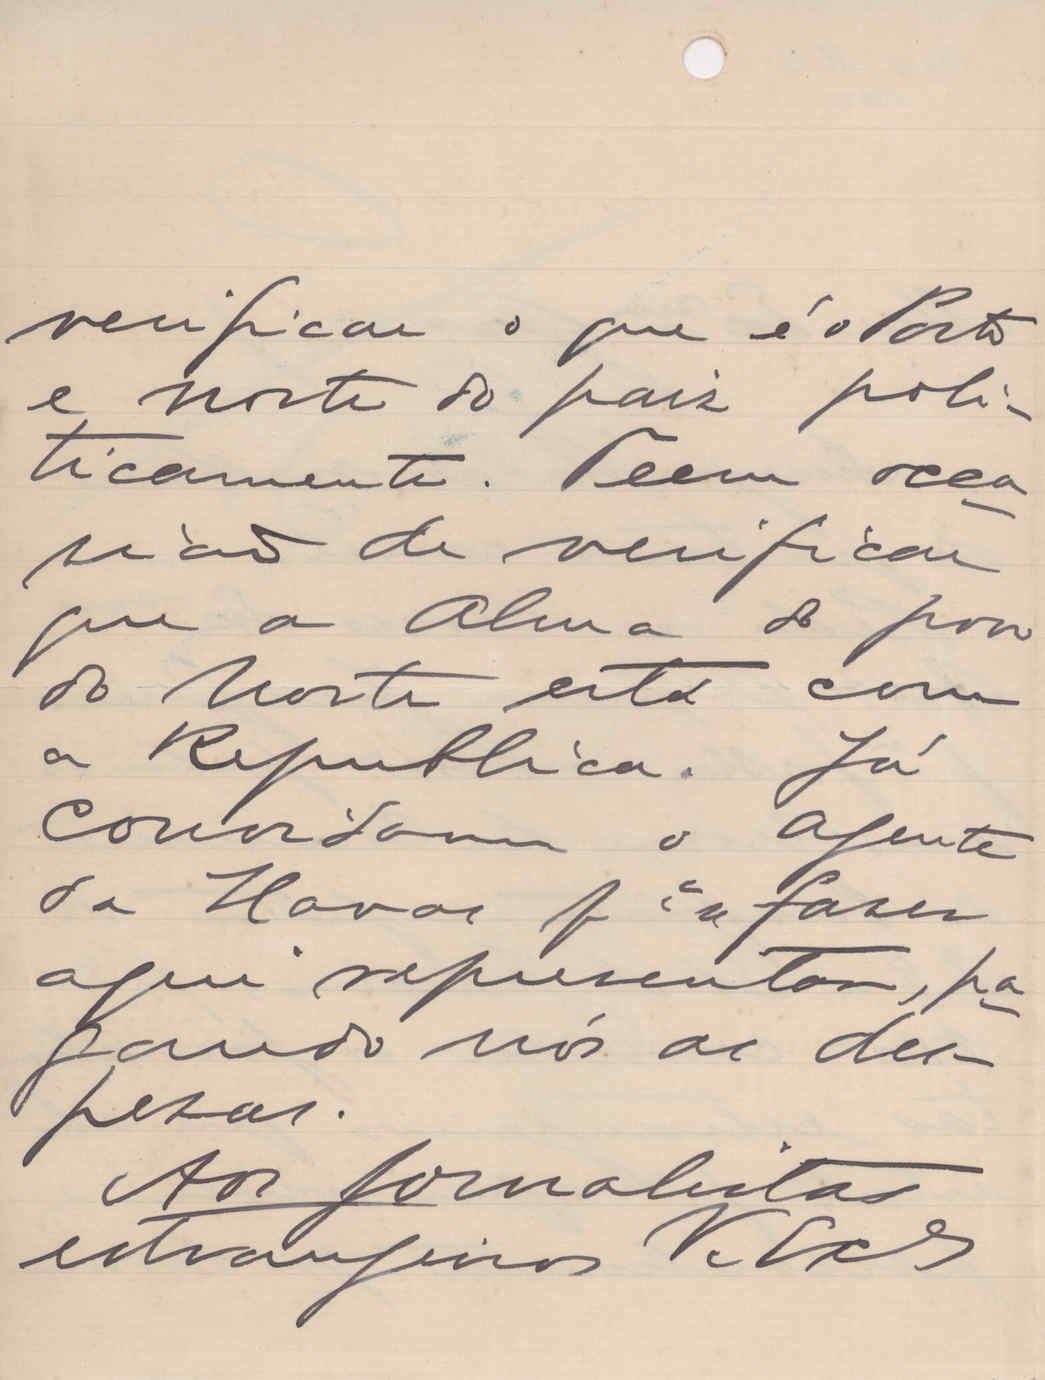 verificar o que é o Porto
e norte do paiz poli-
ticamente. Teem occa-
sião de verificar
que a Alma do povo
do Norte está com
a Republica. Já
convidamos o agente
da Havas p se fazer
aqui representar, pa-
gando nós as des-
pesas.
Aos jornalistas
estrangeiros V. Ex